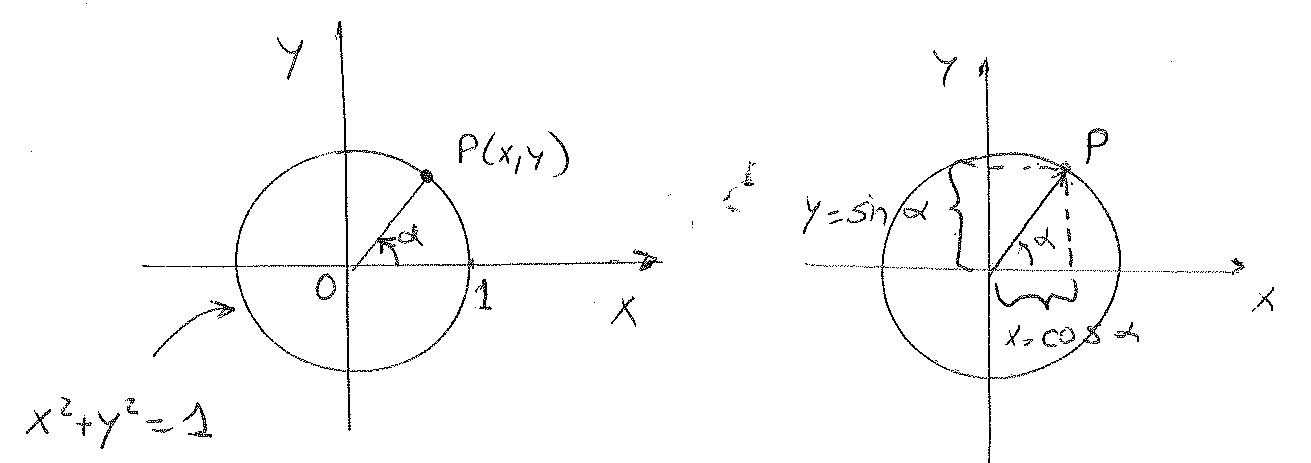 Y
P(x,y)
α
0
1
X
x²+y²=1
Y
P
y=sin α
α
X
x=cos α